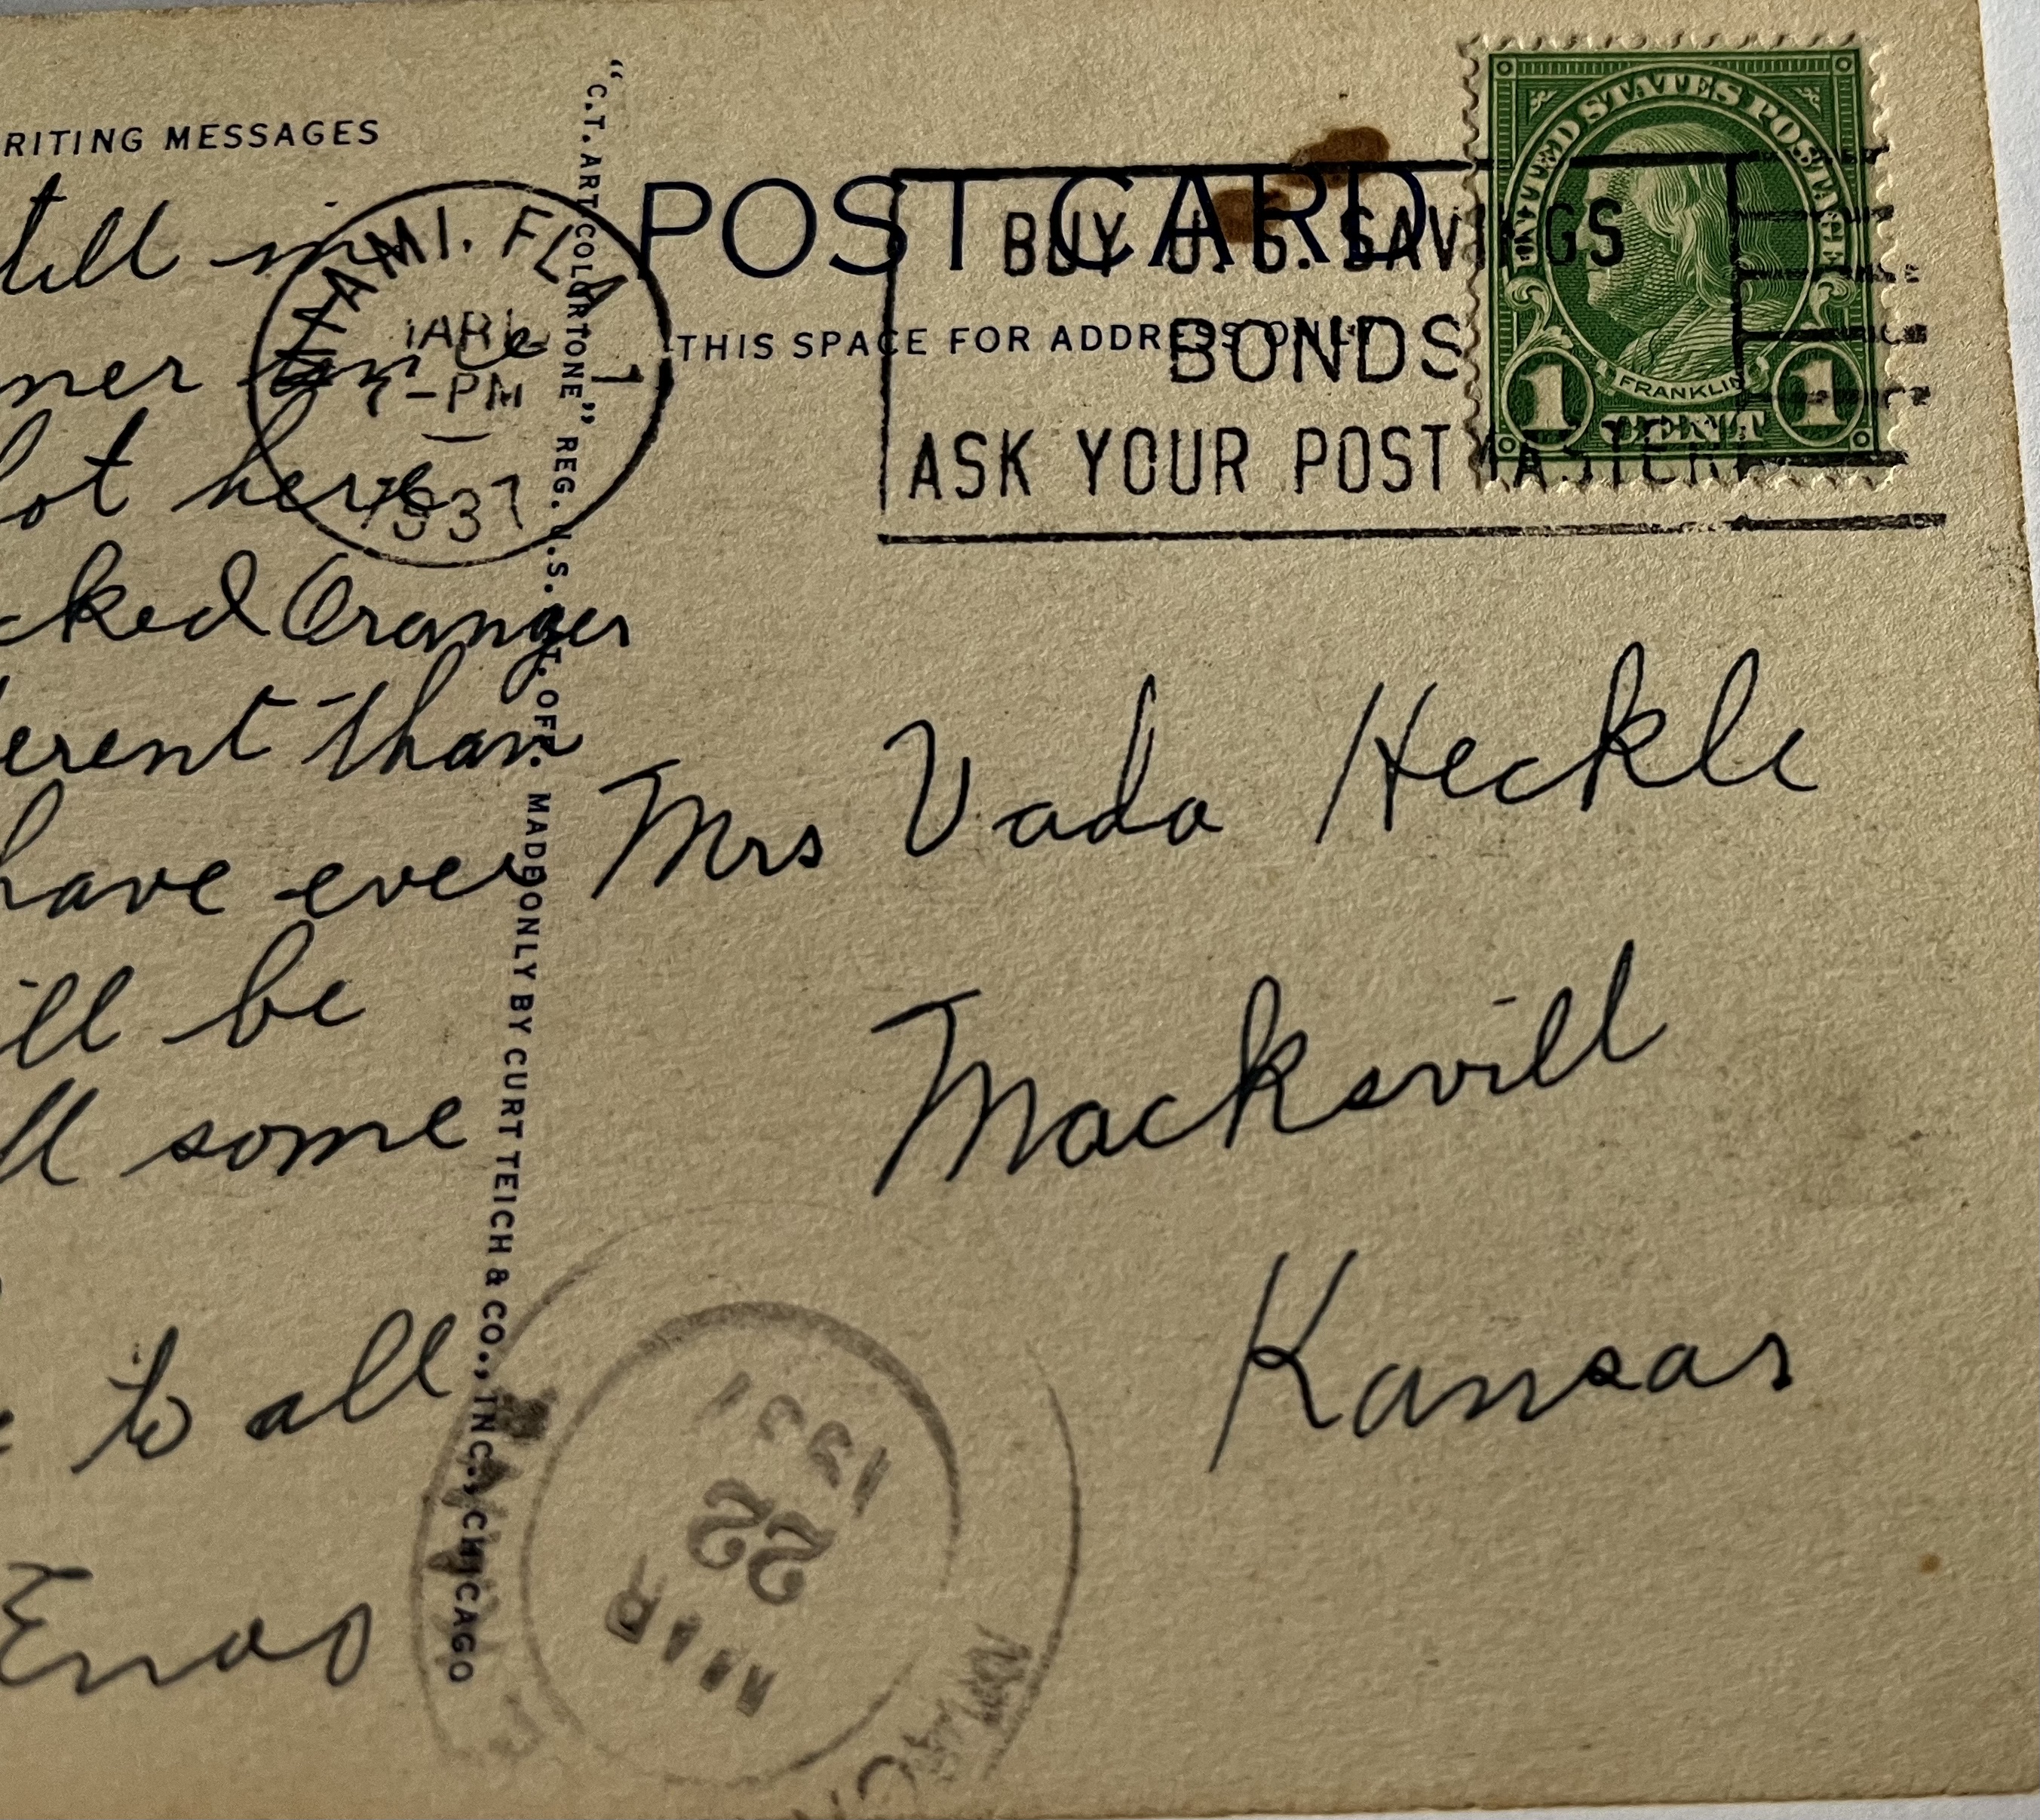 RITING MESSAGES
till in
mer
lot here
cked Oranges
erent than
have ever
ill be
some
to all
Enos
MIAMI, FLA
1
7-PM
1937
"C.T. ART COLORTONE" REG. U.S. PAT. OFF. MADE ONLY BY CURT TEICH & CO., INC., CHICAGO
POST CARD
THIS SPACE FOR ADDRESS ONLY
BUY U.S. SAVINGS
BONDS
ASK YOUR POSTMASTER
UNITED STATES POSTAGE
FRANKLIN
1 CENT 1
Mrs Vada Heckle
Macksvill
Kansas
MAR
22